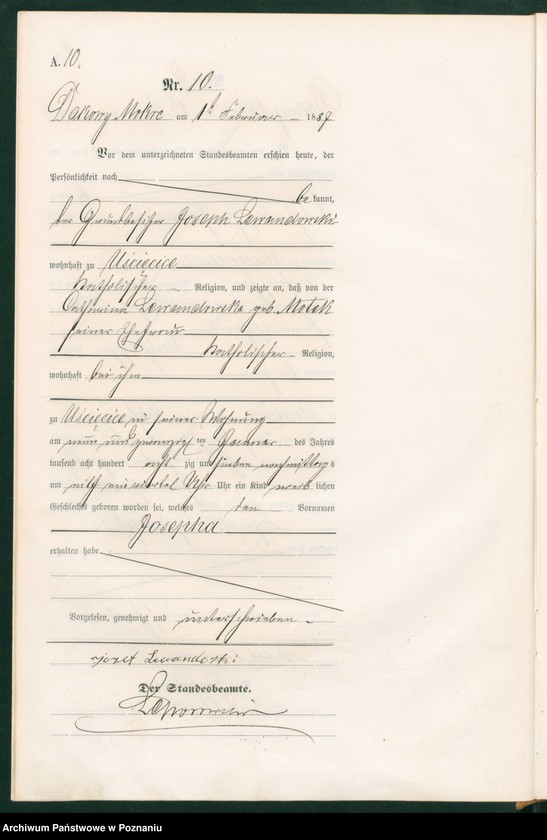 A. 10.
Nr. 10.
Dakowy Mokre am 1t Februar 1887
Vor dem unterzeichneten Standesbeamten erschien heute, der
Persönlichkeit nach
be kannt,
der Grundbesitzer Joseph Lewandowski
wohnhaft zu Uścięcice
katholischer Religion, und zeigte an, daß von der
Catharina Lewandowska geb. Motek
seiner Ehefrau
katholischer Religion,
wohnhaft bei ihm
zu Uścięcice in seiner Wohnung
am neun und zwanzigsten Januar des Jahres
tausend acht hundert acht zig und sieben nachmittags
um Uhr Uhr ein Kind weib lichen
Geschlechts geboren worden sei, welches den Vornamen
Josepha
erhalten habe
Vorgelesen, genehmigt und unterschrieben
Der Standesbeamte.
Archiwum Państwowe w Poznaniu